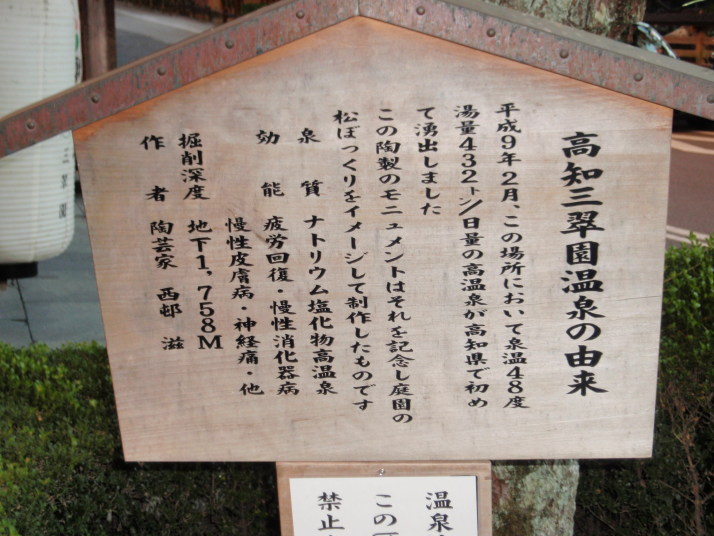 高知三翠園温泉の由来
平成9年2月、この場所において泉温48度
湯量432㌧/日量の高温泉が高知県で初め
て湧出しました
この陶製のモニュメントはそれを記念し庭園の
松ぼっくりをイメージして制作したものです
泉質 ナトリウム塩化物高温泉
効能 疲労回復・慢性消化器病
慢性皮膚病・神経痛・他
掘削深度 地下1,758M
作者 陶芸家 西邨 滋
温泉
この
禁止
三翠園